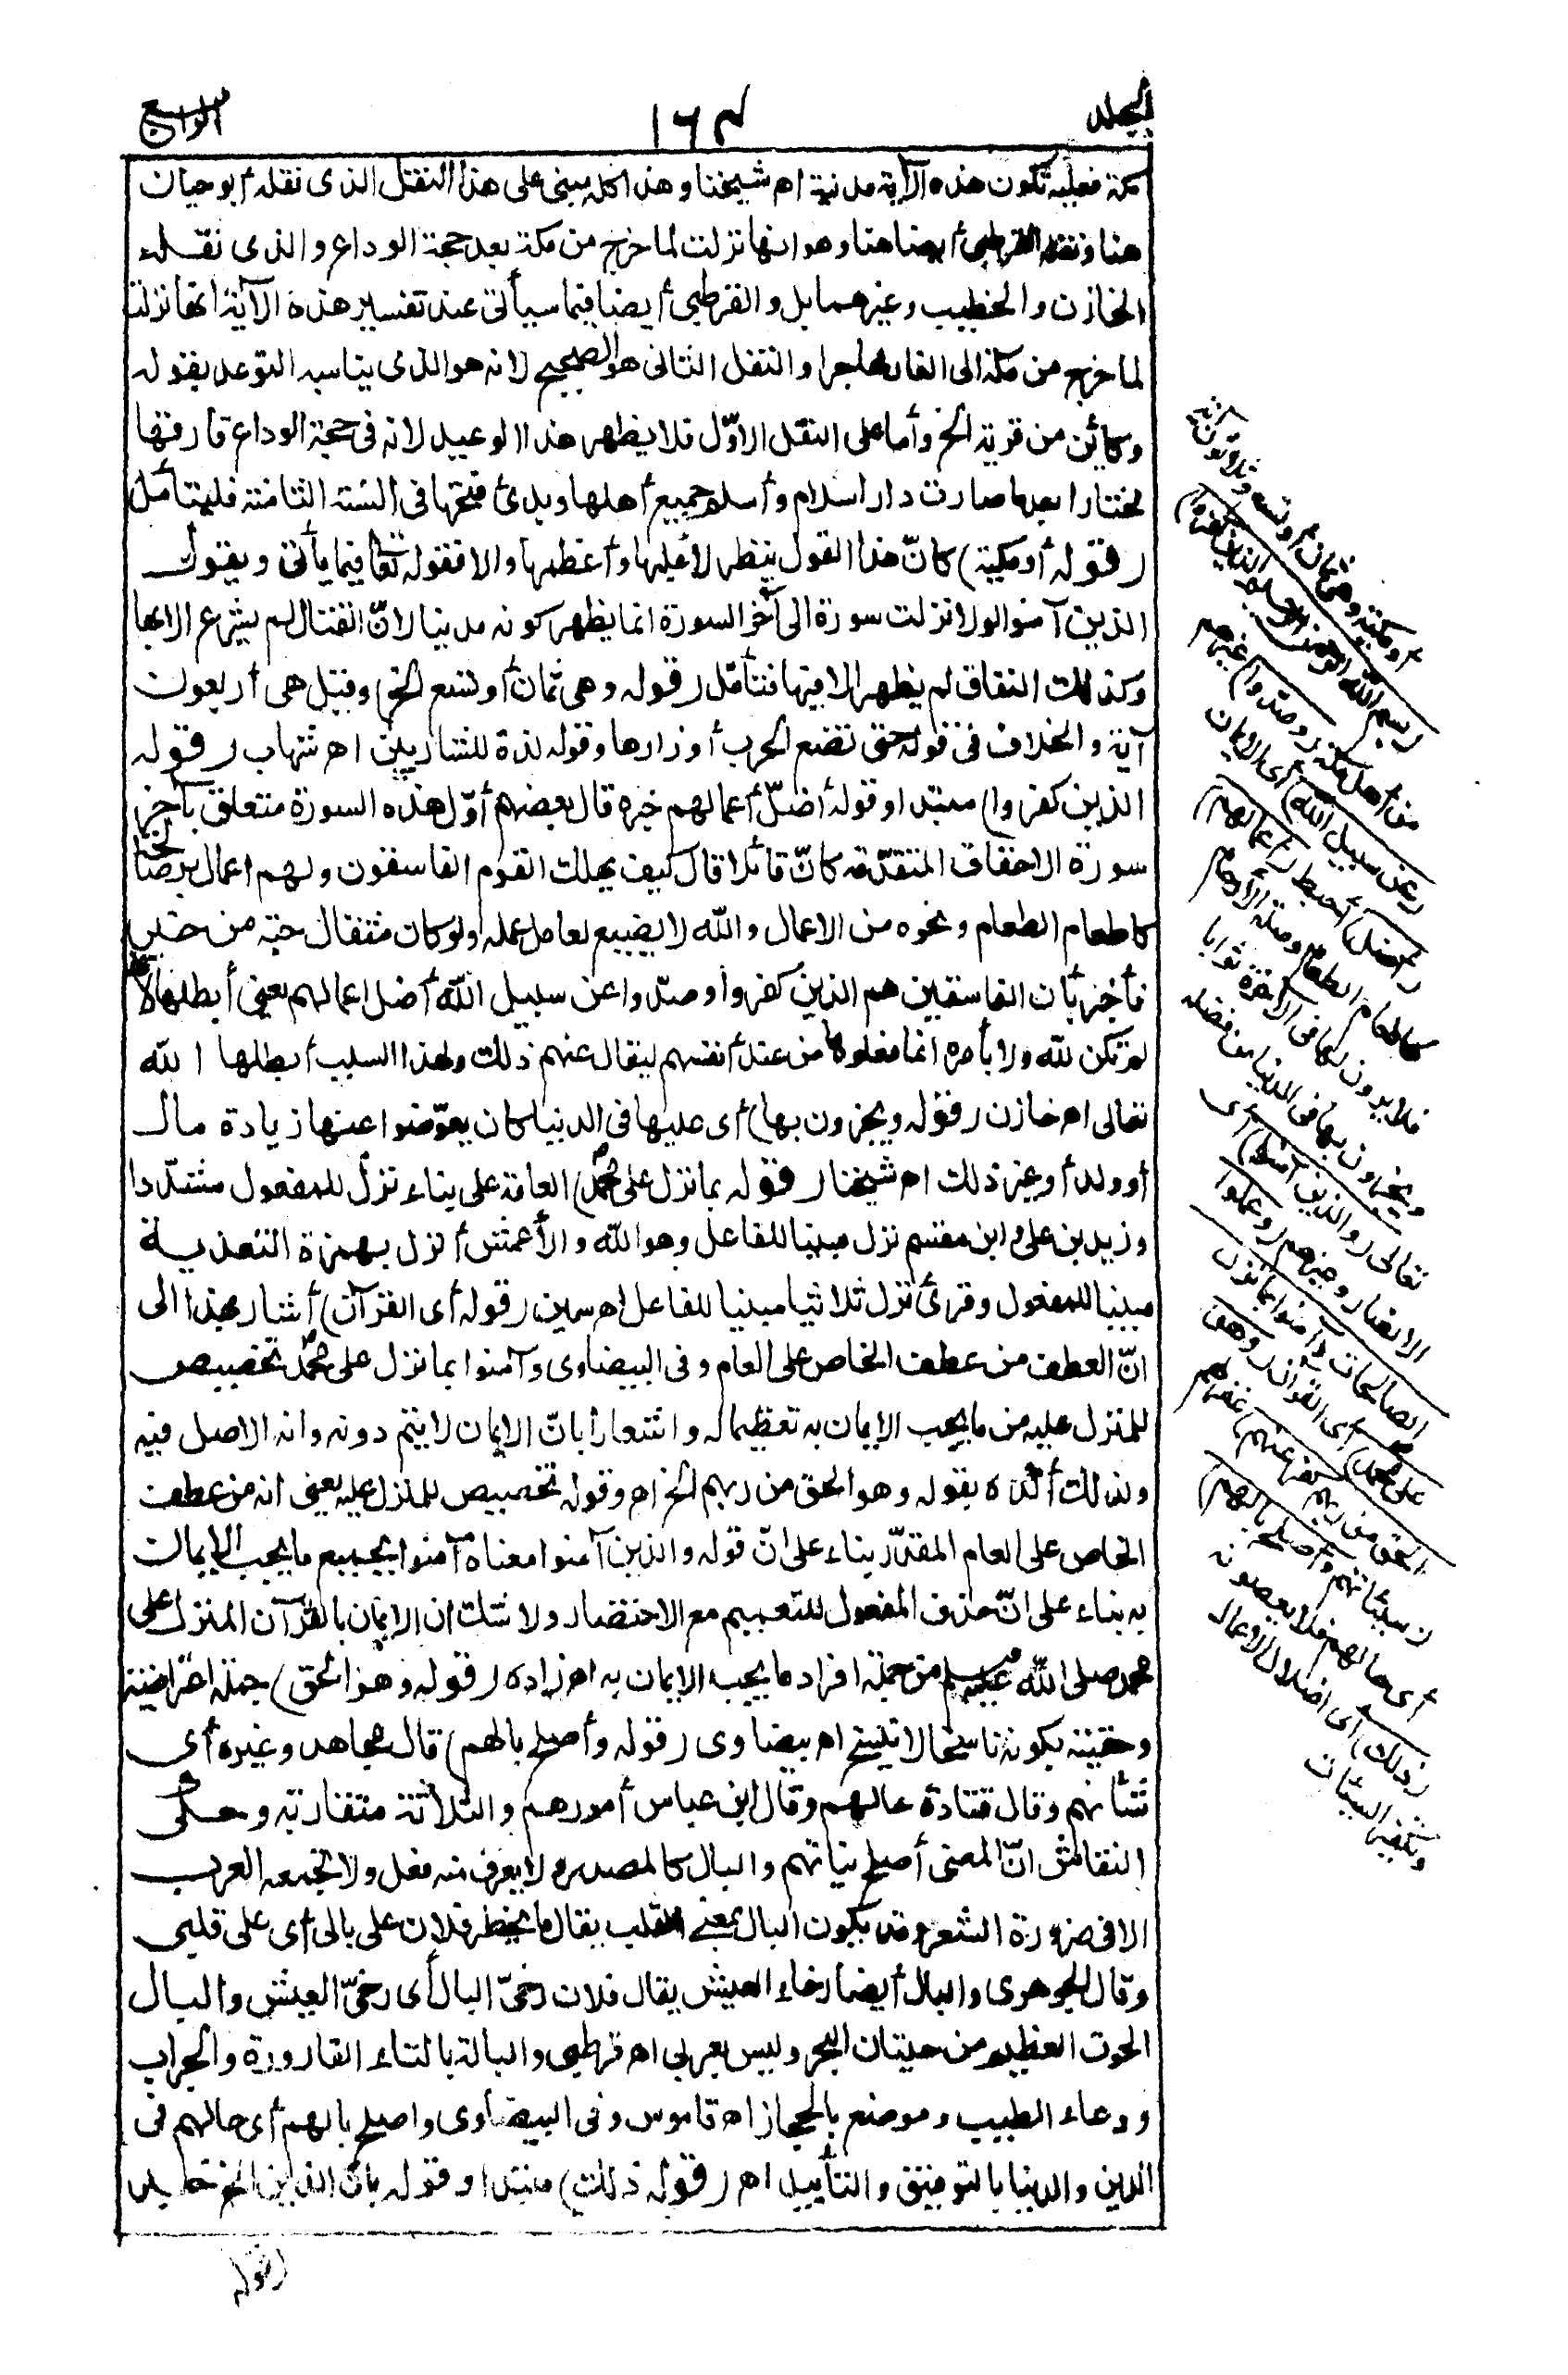 المجلد
١٦٤
الرابع
مكة فعليه تكون هذه الآية مدنية اه شيخنا وهذا كله مبنى على هذا النقل الذى نقله أبو حيان
هنا ونقله القرطبى أيضا هنا وهو انها نزلت لما خرج من مكة بعد حجة الوداع والذى نقله
الخازن والخطيب وغيرهما بل والقرطبى أيضا فيما سيأتى عند تفسير هذه الآية انها نزلت
لما خرج من مكة الى الغار مهاجرا والنقل الثانى هو الصحيح لانه هو الذى يناسبه التوعد بقوله
وكائن من قرية الخ وأما على النقل الاوّل فلا يظهر هذا الوعيد لانه فى حجة الوداع فارقها
مختارا بعد ما صارت دار اسلام وأسلم جميع أهلها وبدئ فتحها فى السنة الثامنة فليتأمل
(قوله أو مكية) كانّ هذا القول ينظر لأغلبها وأعظمها والا فقوله تعالى فيما يأتى ويقول
الذين آمنوا لولا نزلت سورة الى آخر السورة انما يظهر كونه مدنيا لانّ القتال لم يشرع الا بها
وكذلك النفاق لم يظهر الا فيها فتأمّل (قوله وهى ثمان أو تسع الخ) وقيل هى أربعون
آية والخلاف فى قوله حتى تضع الحرب أوزارها وقوله لذة للشاربين اه شهاب (قوله
الذين كفروا) مبتدا وقوله أضلّ أعمالهم خبره قال بعضهم أوّل هذه السورة متعلق بآخر
سورة الاحقاف المتقدّمة كانّ قائلا قال كيف يهلك القوم الفاسقون ولهم اعمال صالحة
كاطعام الطعام ونحوه من الاعمال والله لا يضيع لعامل عمله ولو كان مثقال حبة من خير
فأخبر بأن الفاسقين هم الذين كفروا وصدّوا عن سبيل الله أضل اعمالهم يعنى أبطلها لأنها
لم تكن لله ولا بأمره انما فعلوها من عند أنفسهم ليقال عنهم ذلك ولهذا السبب أبطلها الله
تعالى اه خازن (قوله ويجزون بها) أى عليها فى الدنيا كان يعوّضوا عنها زيادة مال
أو ولد أو غير ذلك اه شيخنا (قوله بما نزل على محمد) العامة على بناء نزل للمفعول مشدّدا
وزيد بن على وابن مقسم نزل مبنيا للفاعل وهو الله والأعمش أنزل بهمزة التعدية
مبنيا للمفعول وقرئ نزل ثلاثيا مبنيا للفاعل اه سمين (قوله أى القرآن) أشار بهذا الى
انّ العطف من عطف الخاص على العام وفى البيضاوى وآمنوا بما نزل على محمد تخصيص
للمنزل عليه من ما يجب الايمان به تعظيما له واشعارا بانّ الايمان لا يتم دونه وانه الاصل فيه
ولذلك أكّده بقوله وهو الحق من ربهم الخ اه وقوله تخصيص للمنزل عليه يعنى انه من عطف
الخاص على العام المقدّر بناء على انّ قوله والذين آمنوا معناه آمنوا بجميع ما يجب الايمان
به بناء على انّ حذف المفعول للتعميم مع الاختصار ولا شك ان الايمان بالقرآن المنزل على
محمد صلى الله عليه وسلم من جملة افراد ما يجب الايمان به اه زاده (قوله وهو الحق) جملة اعتراضية
وحقيته بكونه ناسخا لا ينسخ اه بيضاوى (قوله وأصلح بالهم) قال مجاهد وغيره أى
شأنهم وقال قتادة حالهم وقال ابن عباس أمورهم والثلاثة متقاربة وحكى
النقاش انّ المعنى أصلح نياتهم والبال كالمصدر ولا يعرف منه فعل ولا تجمعه العرب
الا فى ضرورة الشعر وقد يكون البال بمعنى القلب يقال ما يخطر فلان على بالى أى على قلبى
وقال الجوهرى والبال أيضا رخاء العيش يقال فلان رخىّ البال أى رخىّ العيش والبال
الحوت العظيم من حيتان البحر وليس بعربى اه قرطبى والبالة بالتاء القارورة والجراب
ووعاء الطيب وموضع بالحجاز اه قاموس وفى البيضاوى واصلح بالهم أى حالهم فى
الدين والدنيا بالتوفيق والتأييد اه (قوله ذلك) مبتدا وقوله بانّ الذين الخ خبره
(قوله
أو مكية وهى ثمان أو تسع وثلاثون آية
(بسم الله الرحمن الرحيم الذين كفروا)
من أهل مكة (وصدّوا) غيرهم
(عن سبيل الله) أى الايمان
(أضل) أحبط (أعمالهم)
كاطعام الطعام وصلة الأرحام
فلا يرون لها فى الآخرة ثوابا
ويجزون بها فى الدنيا من فضله
تعالى (والذين آمنوا) أى
الانصار وغيرهم (وعملوا
الصالحات وآمنوا بما نزل
على محمد) أى القرآن (وهو
الحق من ربهم كفر عنهم) غفر لهم
(سيئاتهم وأصلح بالهم)
أى حالهم فلا يعصونه
(ذلك) أى اضلال الأعمال
وتكفير السيئات